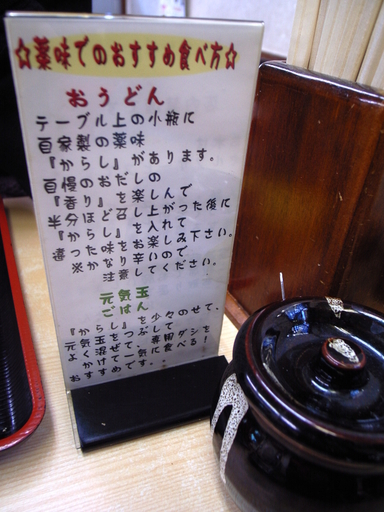 ☆薬味でのおすすめ食べ方☆
おうどん
テーブル上の小瓶に
自家製の薬味
『からし』があります。
自慢のおだしの
『香り』を楽しんで
半分ほど召し上がった後に
『からし』を入れて
違った味をお楽しみ下さい。
※かなり辛いので
注意してください。
元気玉
ごはん
『からし』を少々のせて、
元気玉をつぶして
よく混ぜて、専用ダシを
かけて一気に食べる！
おすすめです。